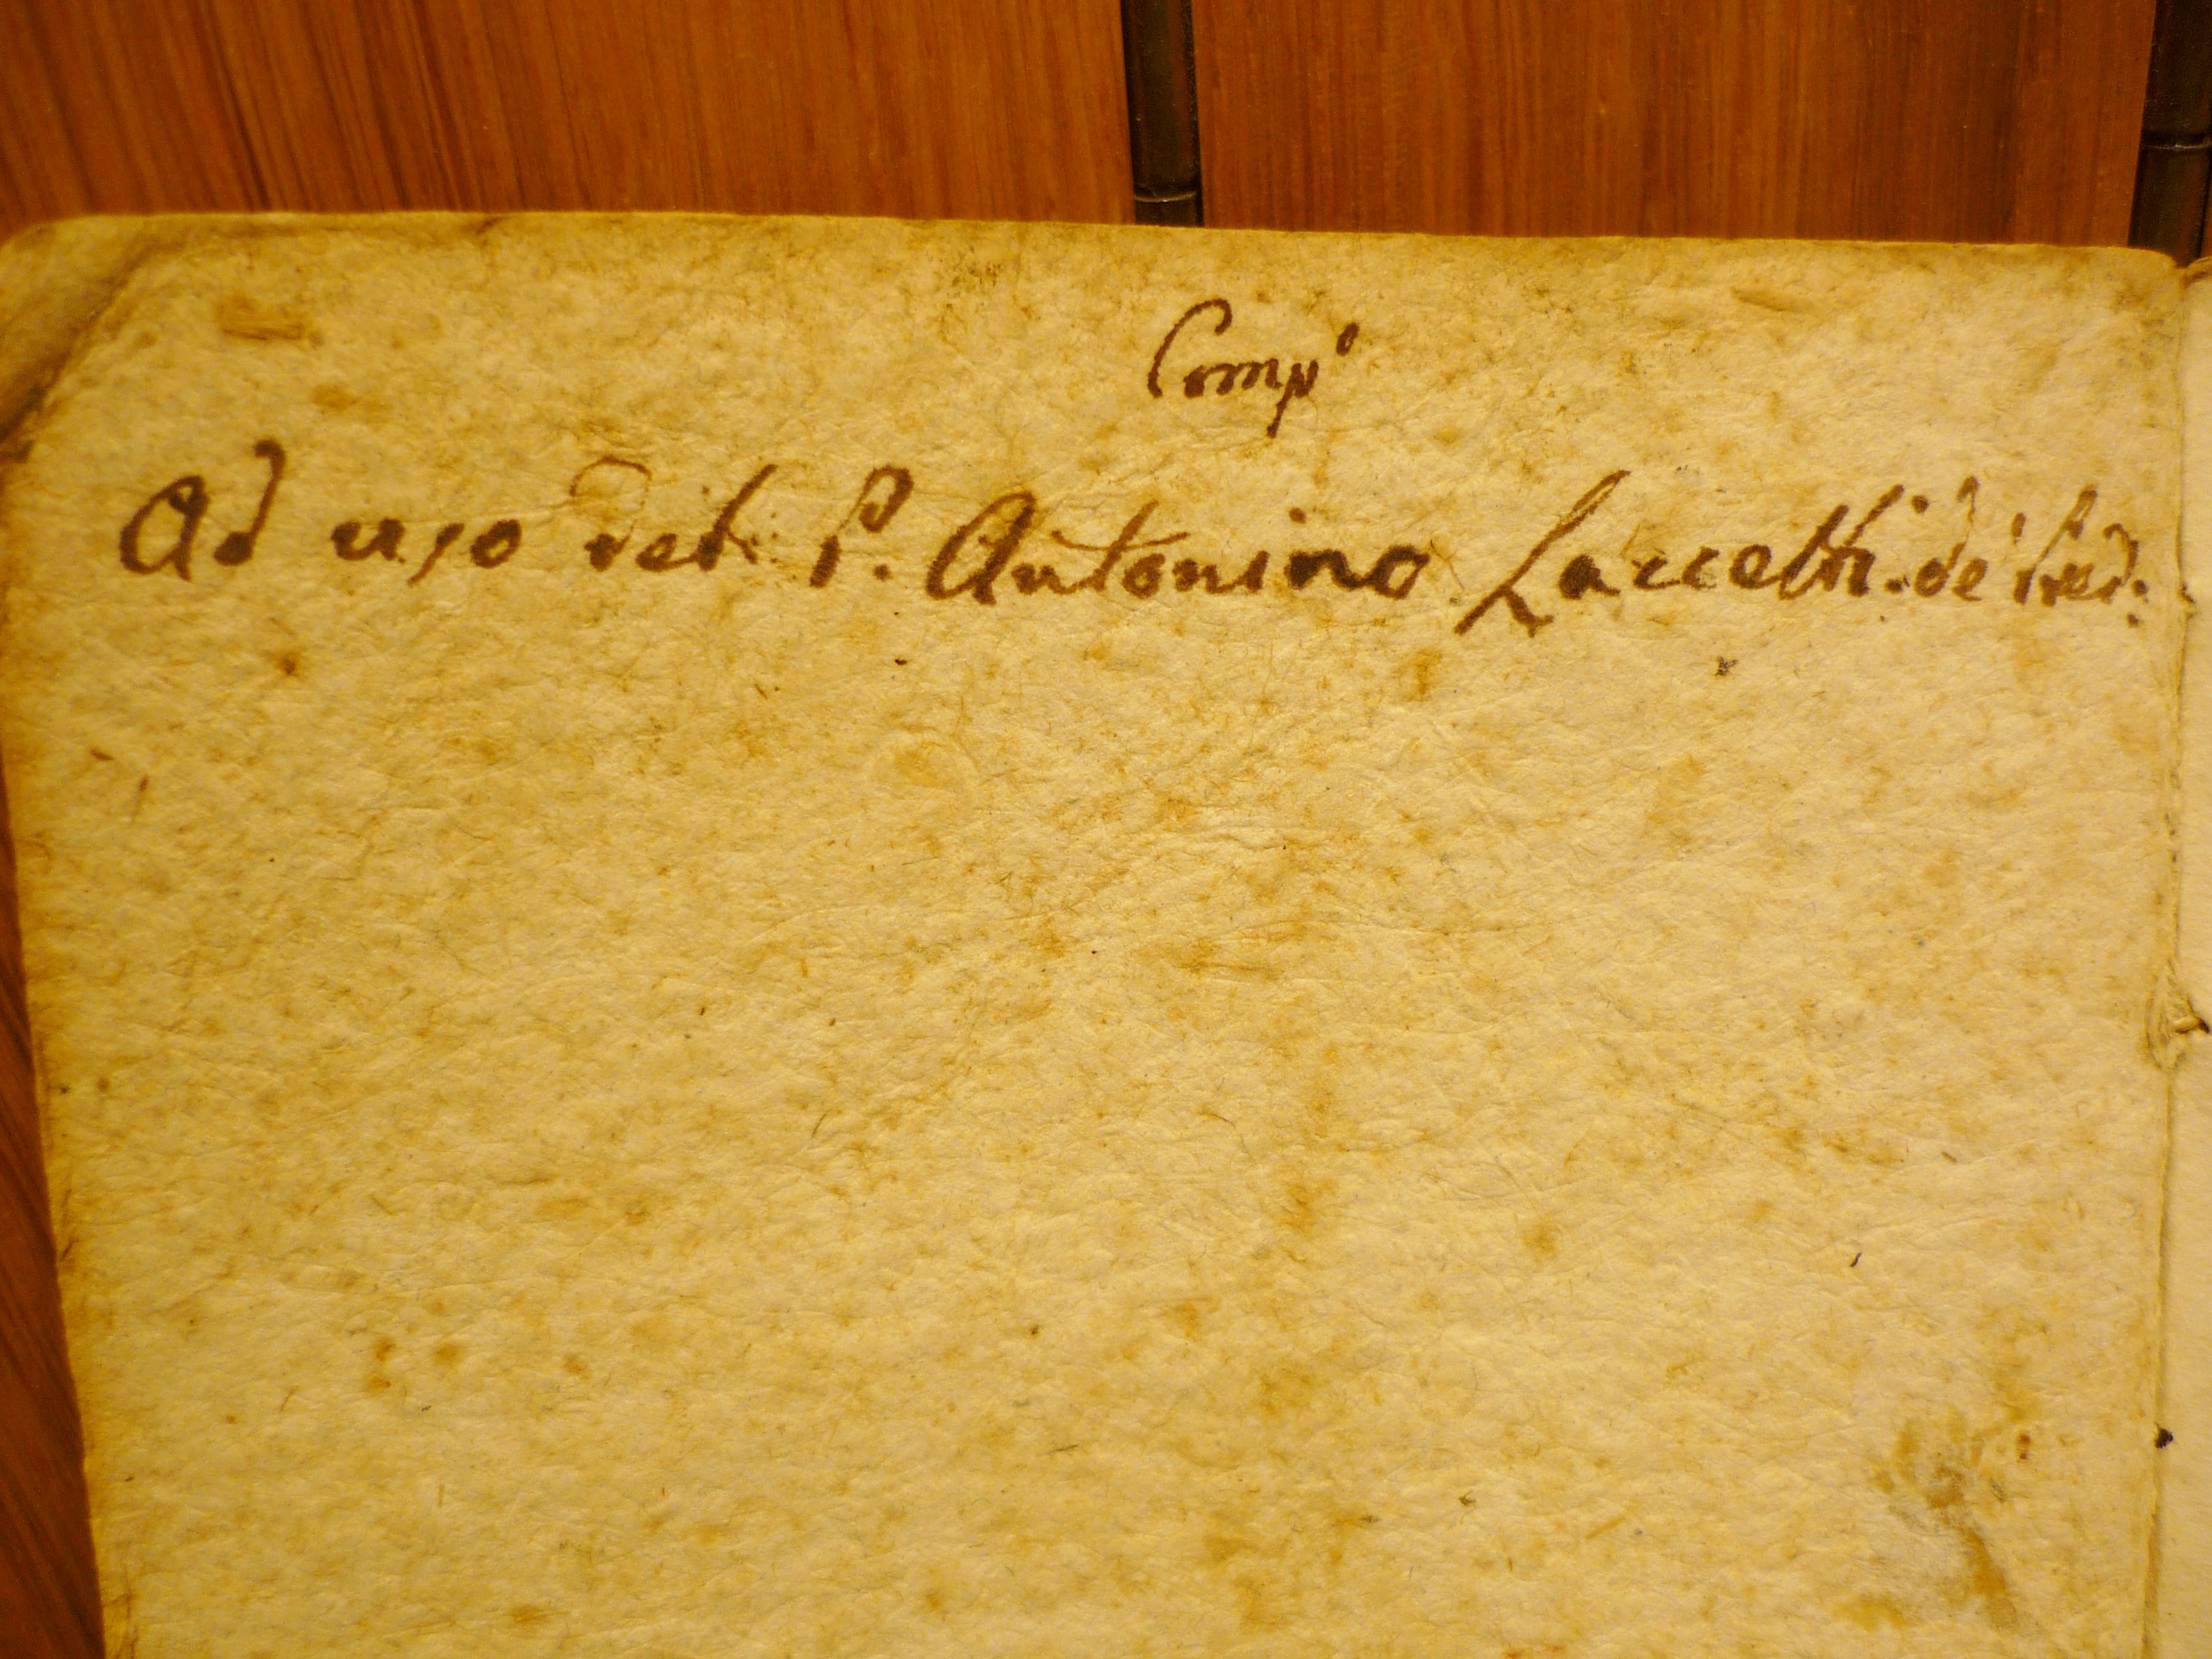 Comp°
Ad uso del P. Antonino Laccetti de' Pred: